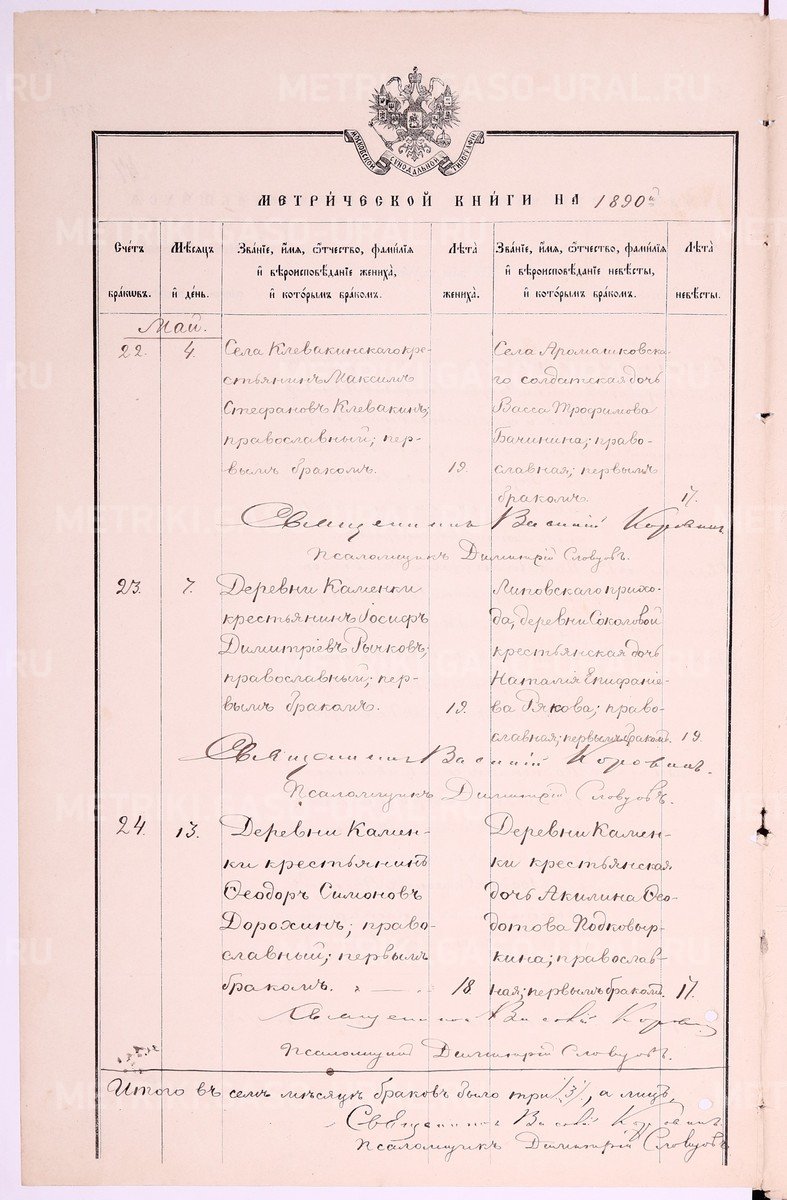 МОСКОВСКОЙ СѴНОДАЛЬНОЙ ТИПОГРАФІИ
МЕТРИ́ЧЕСКОЙ КНИ́ГИ НА 1890й
Сче́тъ бра́кωвъ.
Мѣ́сѧцъ и҆ де́нь.
Зва́нїе, и҆́мѧ, ѻ҆́тчество, фами́лїѧ и҆ вѣроисповѣ́данїе жениха̀, и҆ кото́рымъ бра́комъ.
Лѣ́та жениха̀.
Зва́нїе, и҆́мѧ, ѻ҆́тчество, фами́лїѧ и҆ вѣроисповѣ́данїе невѣ́сты, и҆ кото́рымъ бра́комъ.
Лѣ́та невѣ́сты.
Май.
22.
4.
Села Клевакинскаго кре-
стьянинъ Максимъ
Стефановъ Клевакинъ;
православный; пер-
вымъ бракомъ.
19.
Села Аромашковска-
го солдатская дочь
Васса Трофимова
Бачинина; право-
славная; первымъ
бракомъ.
17.
Священникъ Василій Коровинъ
Псаломщикъ Димитрій Словцовъ.
23.
7.
Деревни Каменки
крестьянинъ Іосифъ
Димитріевъ Рычковъ;
православный; пер-
вымъ бракомъ.
19.
Липовскаго прихо-
да, деревни Соколовой
крестьянская дочь
Наталія Епифаніе-
ва Рякова; право-
славная; первымъ бракомъ.
19.
Священникъ Василій Коровинъ.
Псаломщикъ Димитрій Словцовъ.
24.
13.
Деревни Камен-
ки крестьянинъ
Ѳеодоръ Симоновъ
Дорохинъ; право-
славный; первымъ
бракомъ.
18.
Деревни Камен-
ки крестьянская
дочь Акилина Ѳео-
дотова Подковыр-
кина; православ-
ная; первымъ бракомъ.
17.
Священникъ Василій Коровинъ
Псаломщикъ Димитрій Словцовъ.
Итого въ семъ мѣсяцѣ браковъ было три /3/, а лицъ,
Священникъ Василій Коровинъ
Псаломщикъ Димитрій Словцовъ